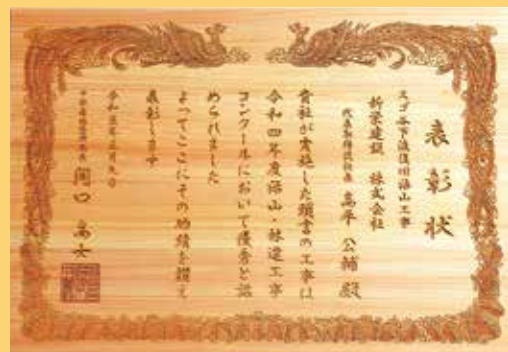 表彰状
スゴ谷下流復旧治山工事
新栄建設 株式会社
代表取締役社長 高平 公輔 殿
貴社が実施した頭書の工事は
令和四年度治山・林道工事
コンクールにおいて優秀と認
められました
よってここにその功績を讃え
表彰します
令和五年三月九日
関口 高士